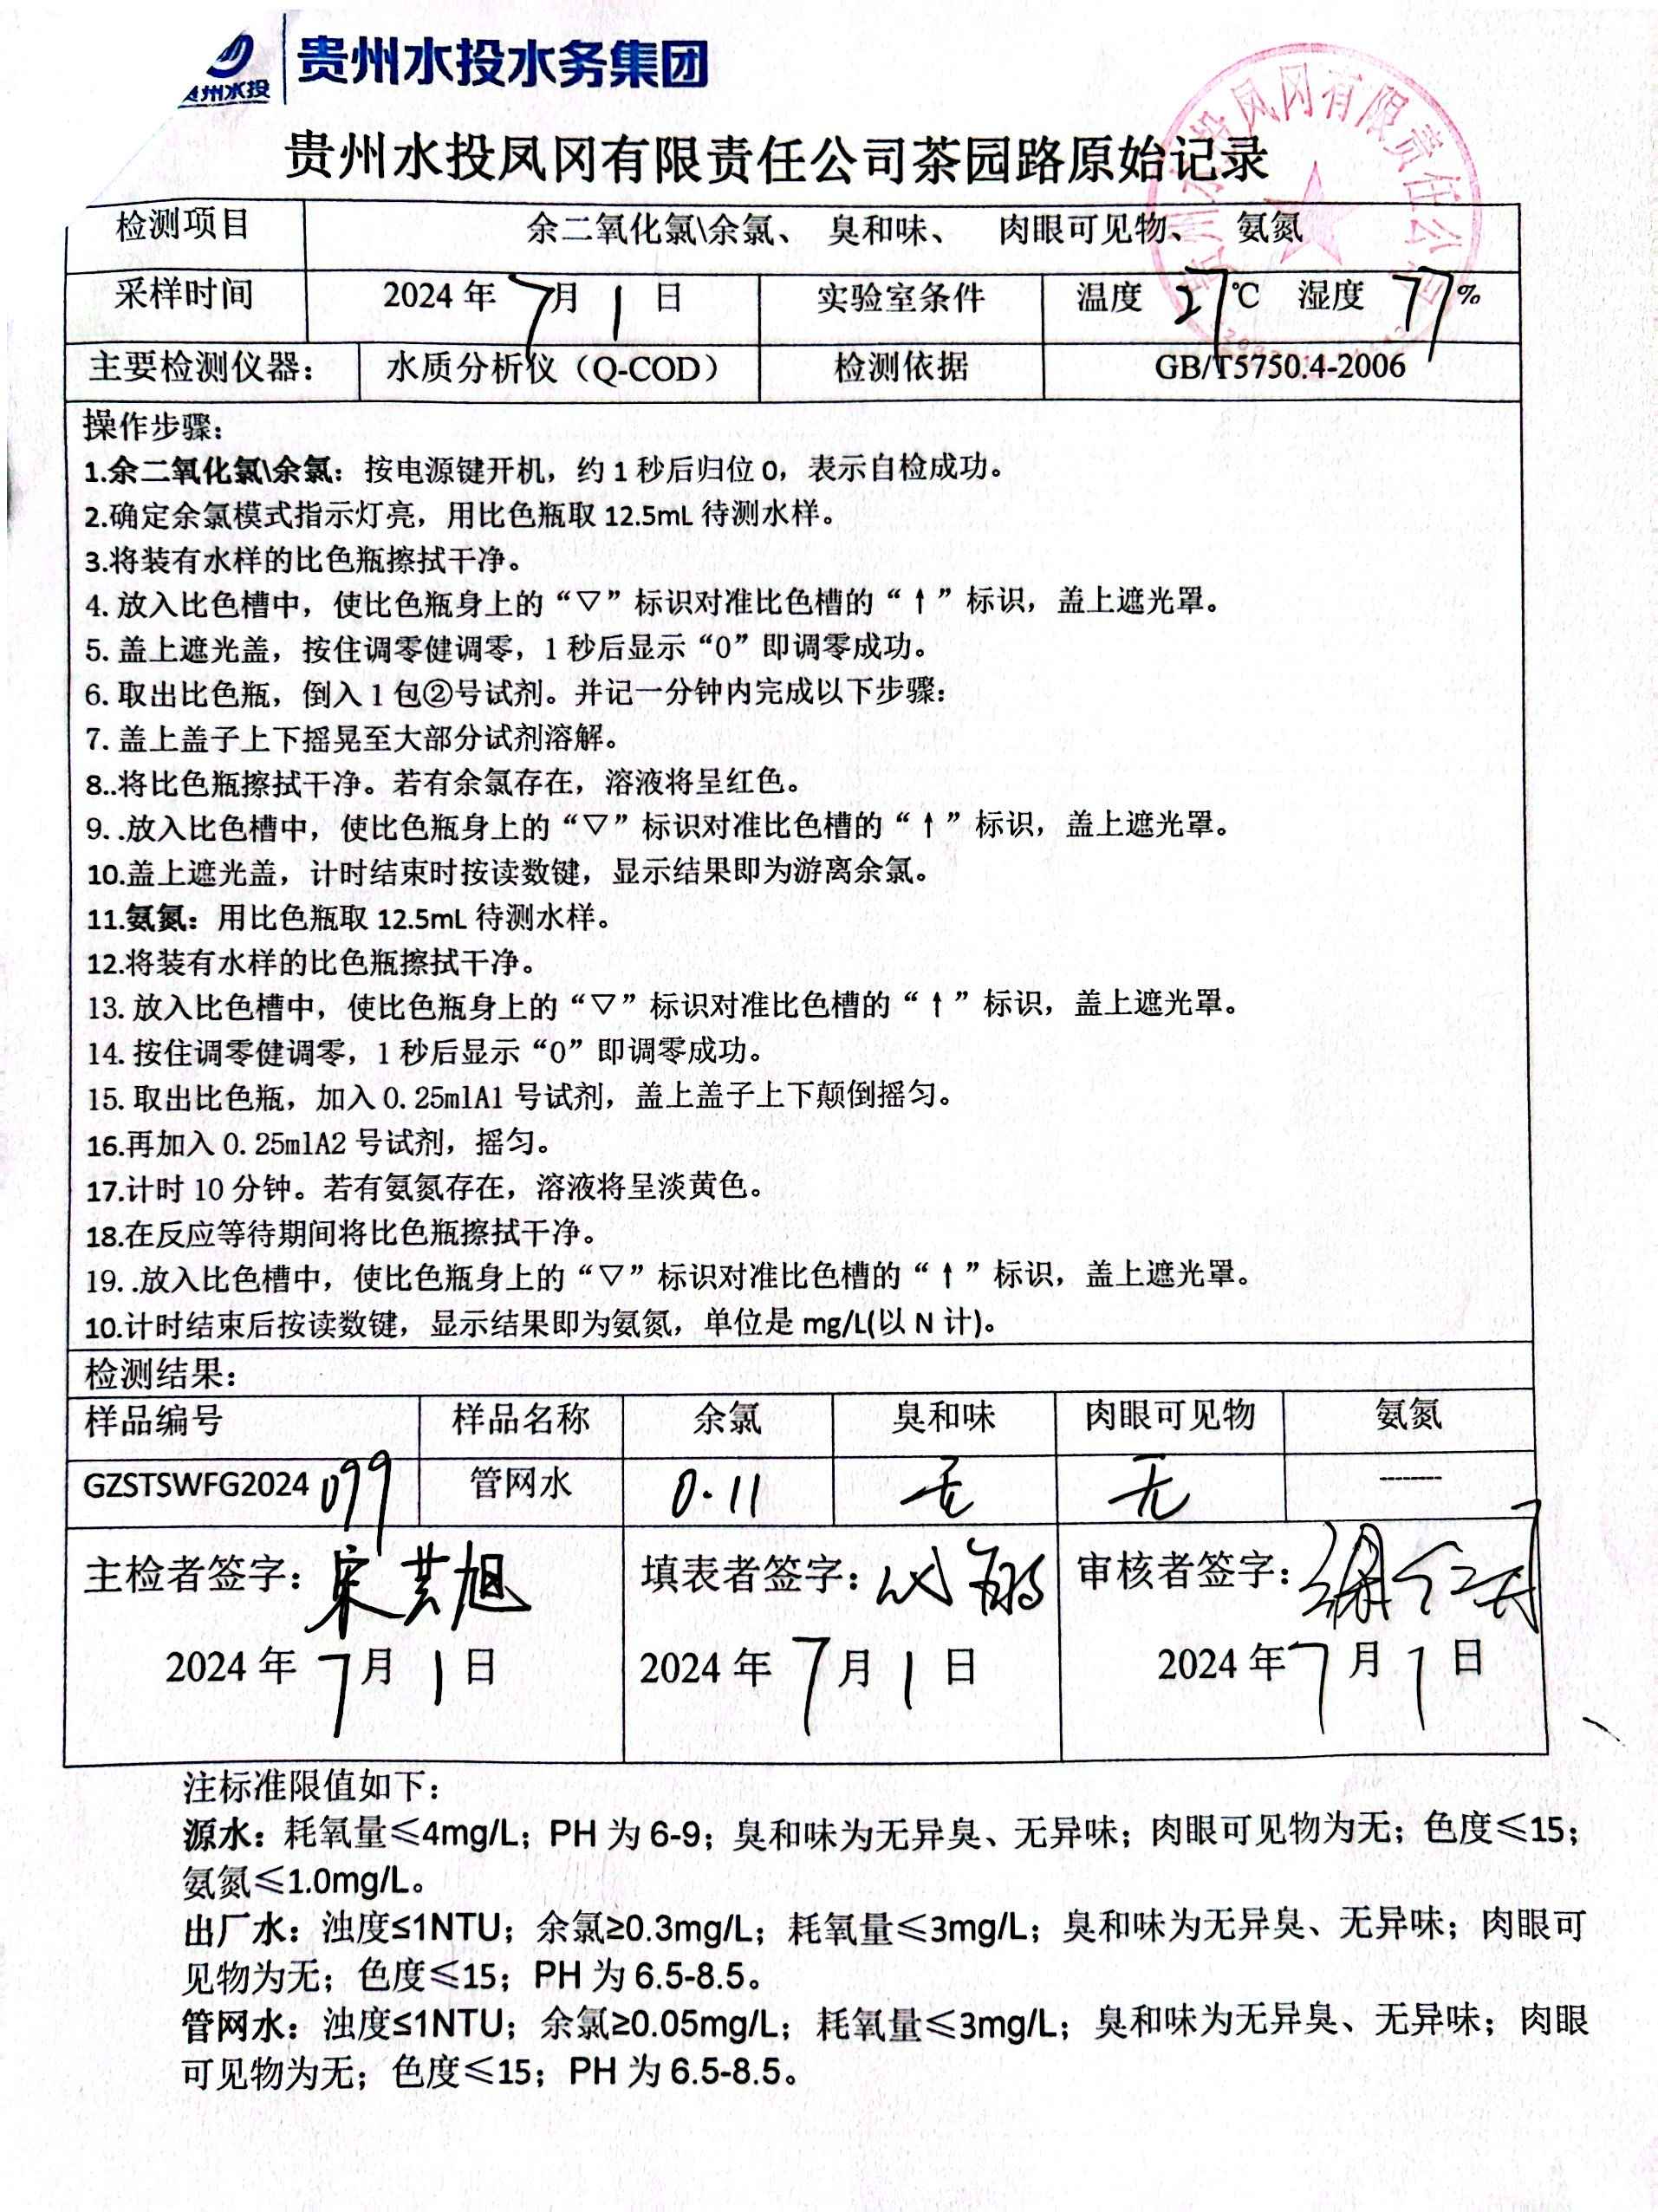 贵州水投水务集团
州水投
贵州水投凤冈有限责任公司茶园路原始记录
凤冈有限责任公
检测项目 余二氧化氯\余氯、 臭和味、 肉眼可见物、 氨氮
采样时间 2024年7月1日 实验室条件 温度 27℃ 湿度 77%
主要检测仪器： 水质分析仪（Q-COD） 检测依据 GB/T5750.4-2006
操作步骤：
1.余二氧化氯\余氯：按电源键开机，约1秒后归位0，表示自检成功。
2.确定余氯模式指示灯亮，用比色瓶取12.5mL待测水样。
3.将装有水样的比色瓶擦拭干净。
4. 放入比色槽中，使比色瓶身上的“▽”标识对准比色槽的“↑”标识，盖上遮光罩。
5. 盖上遮光盖，按住调零健调零，1秒后显示“0”即调零成功。
6. 取出比色瓶，倒入1包②号试剂。并记一分钟内完成以下步骤：
7. 盖上盖子上下摇晃至大部分试剂溶解。
8..将比色瓶擦拭干净。若有余氯存在，溶液将呈红色。
9. .放入比色槽中，使比色瓶身上的“▽”标识对准比色槽的“↑”标识，盖上遮光罩。
10.盖上遮光盖，计时结束时按读数键，显示结果即为游离余氯。
11.氨氮：用比色瓶取12.5mL待测水样。
12.将装有水样的比色瓶擦拭干净。
13. 放入比色槽中，使比色瓶身上的“▽”标识对准比色槽的“↑”标识，盖上遮光罩。
14. 按住调零健调零，1秒后显示“0”即调零成功。
15. 取出比色瓶，加入0.25mlA1号试剂，盖上盖子上下颠倒摇匀。
16.再加入0.25mlA2号试剂，摇匀。
17.计时10分钟。若有氨氮存在，溶液将呈淡黄色。
18.在反应等待期间将比色瓶擦拭干净。
19. .放入比色槽中，使比色瓶身上的“▽”标识对准比色槽的“↑”标识，盖上遮光罩。
10.计时结束后按读数键，显示结果即为氨氮，单位是mg/L(以N计)。
检测结果：
样品编号 样品名称 余氯 臭和味 肉眼可见物 氨氮
GZSTSWFG2024099 管网水 0.11 无 无 -------
主检者签字：宋芸旭 填表者签字： 审核者签字：
2024年7月1日 2024年7月1日 2024年7月1日
注标准限值如下：
源水：耗氧量≤4mg/L；PH为6-9；臭和味为无异臭、无异味；肉眼可见物为无；色度≤15；
氨氮≤1.0mg/L。
出厂水：浊度≤1NTU；余氯≥0.3mg/L；耗氧量≤3mg/L；臭和味为无异臭、无异味；肉眼可
见物为无；色度≤15；PH为6.5-8.5。
管网水：浊度≤1NTU；余氯≥0.05mg/L；耗氧量≤3mg/L；臭和味为无异臭、无异味；肉眼
可见物为无；色度≤15；PH为6.5-8.5。